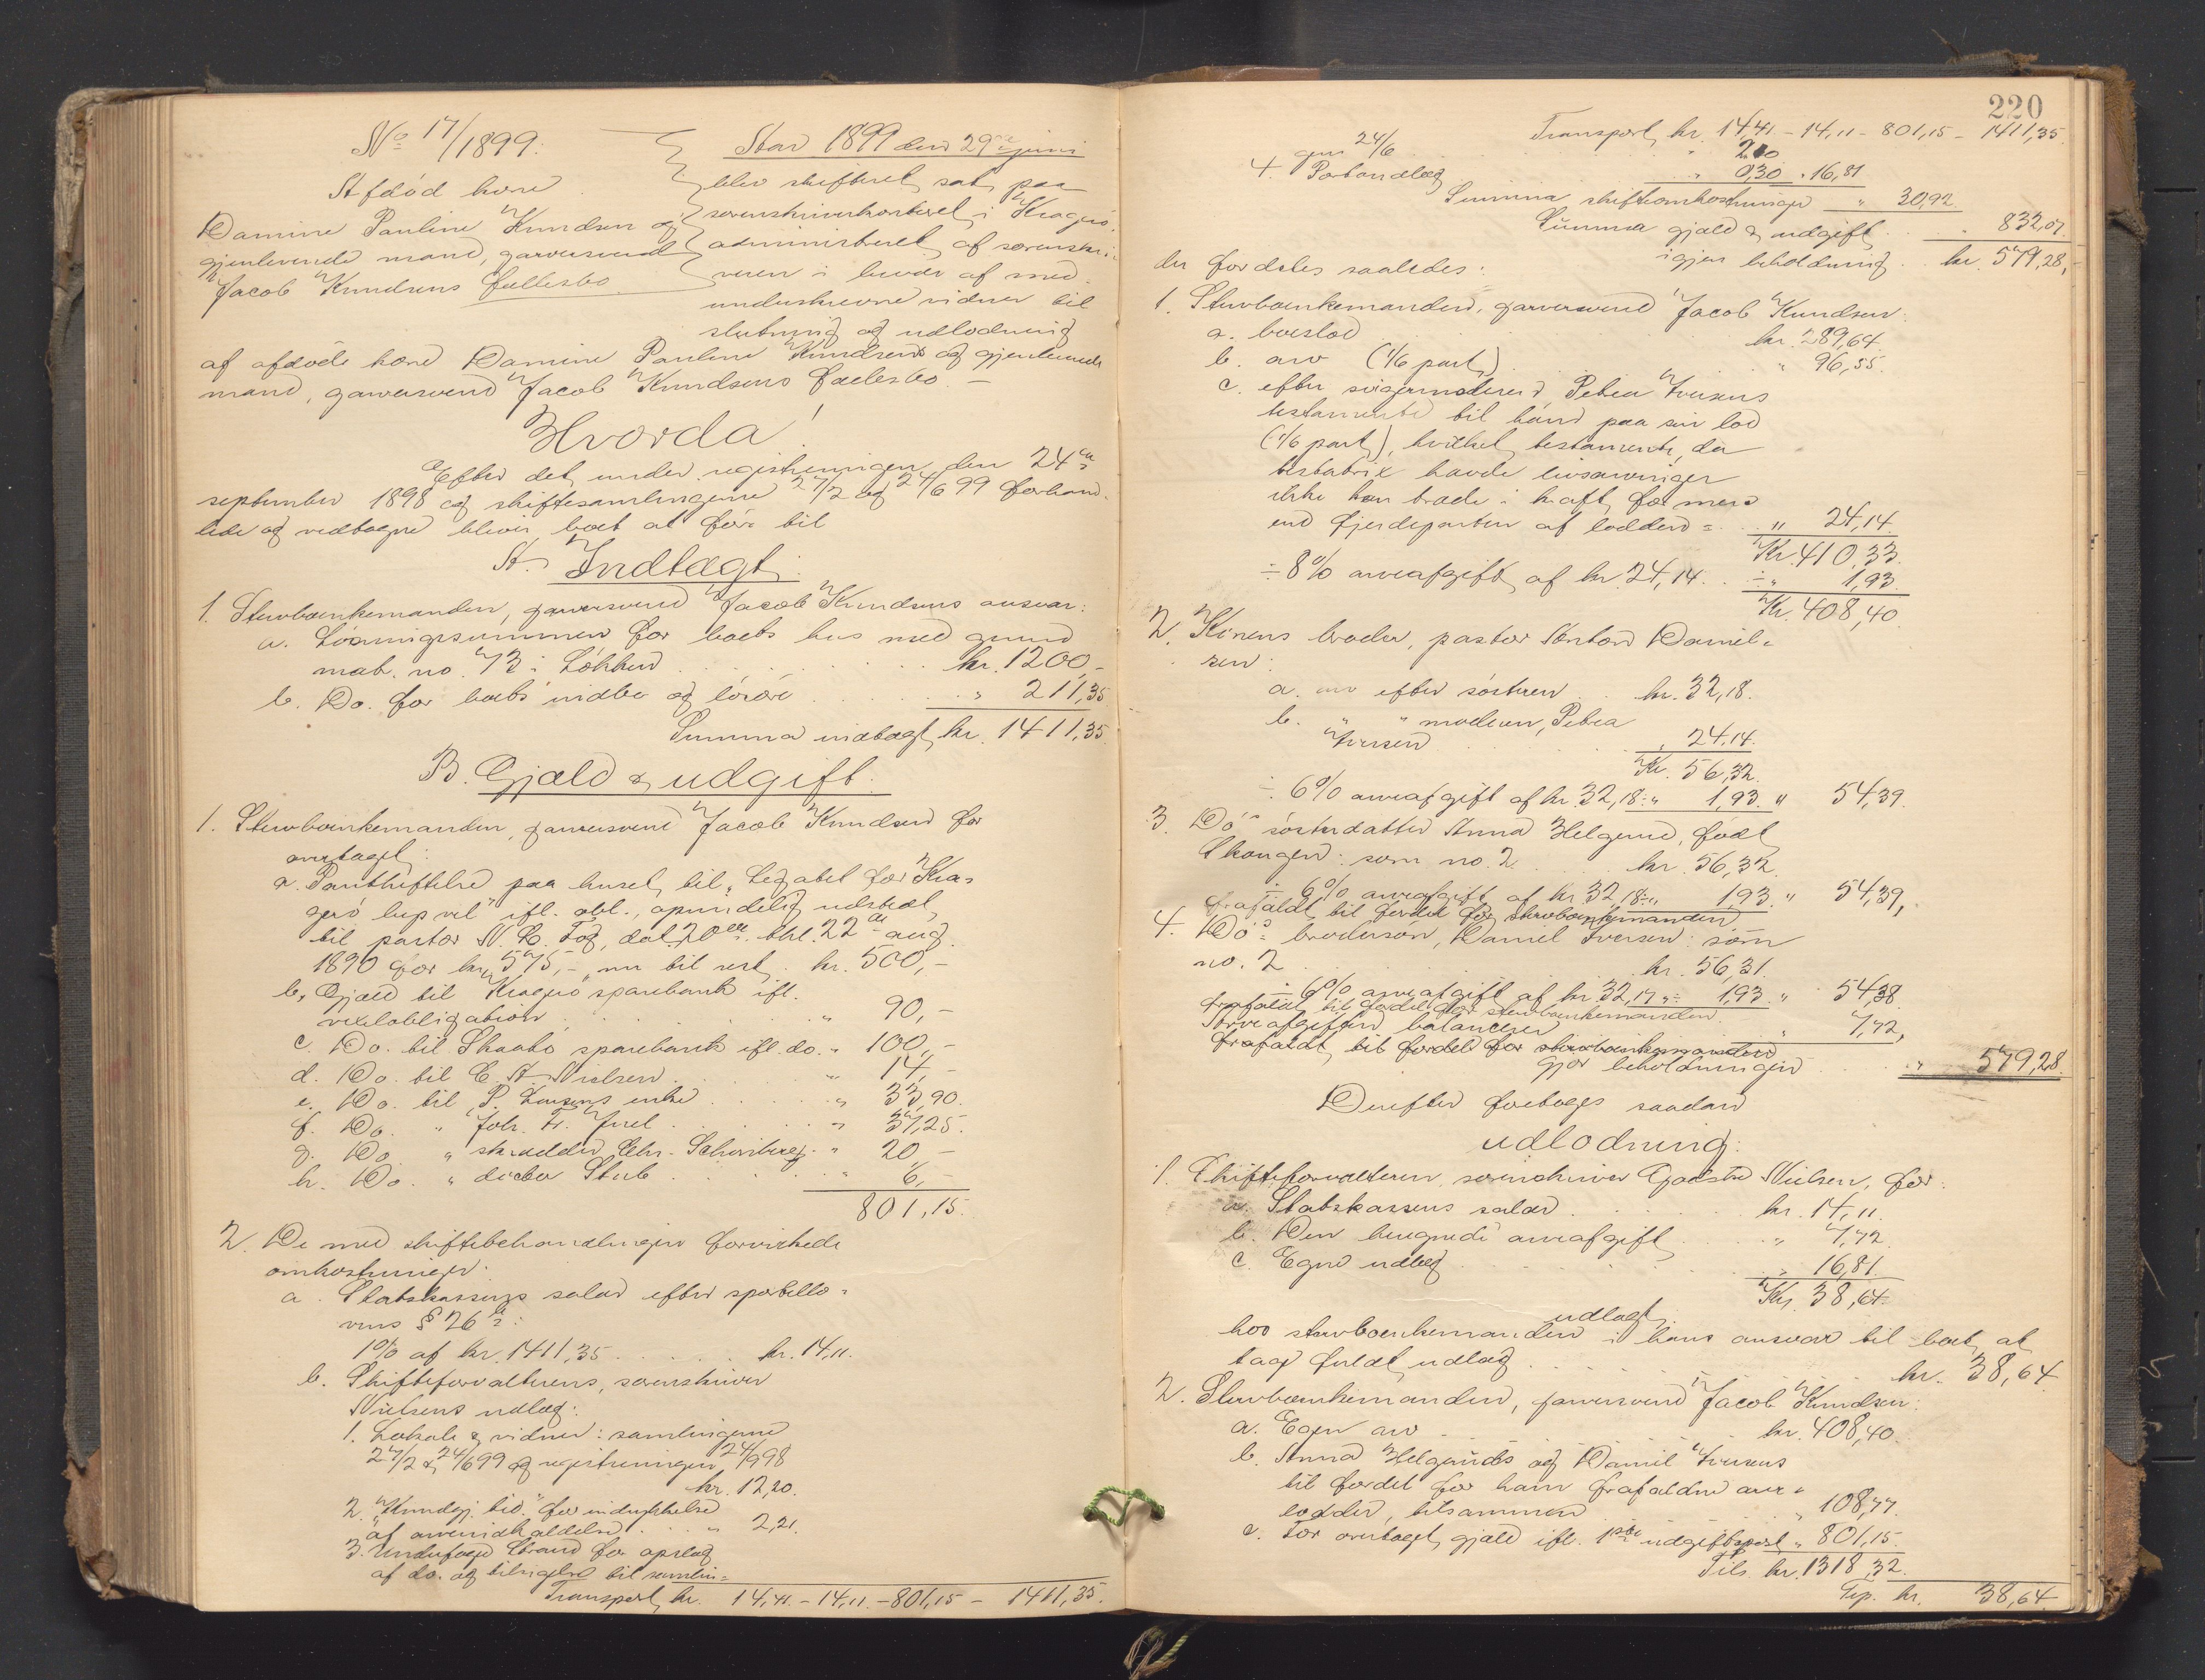 No 17/1899.
Afdöd kone
Damine Pauline Knudsen og
gjenlevende mand, garversvend
Jacob Knudsens fællesbo
Aar 1899 den 29de juni
blev skifteret sat paa
sorenskriverkontoret i Kragerö
administreret af sorenskri-
veren i hvær af med-
underskrevne vidner til
slutning og udlodning
af afdöde kone Damine Pauline Knudsens og gjenlevende
mand, garversvend Jacob Knudsens fællesbo. –
Hvorda!
Efter det under registreringen den 24de
september 1898 og skiftesamlingerne 27/2 og 24/6 99 forhand-
lede og vedtagne bliver boet at före til
A. Indtægt.
1. Stervboenkemanden, garversvend Jacob Knudsens ansvar:
a. Lösningssummen for boets hus med grund
mat. no. 73 i Lökken kr. 1200,-
b. Do. for boets indbo og lösöre " 211,35
Summa indtægt kr. 1411,35.
B. Gjæld & udgift.
1. Stervboenkemanden, garversvend Jacob Knudsen for
overtaget:
a. Pantheftelse paa huset til "Legatet for Kra-
gerö lup vel" ifl. obl., oprindelig udstedt
til pastor N. L. Fog, dat. 20de thl. 22de aug.
1890 for kr. 575,- nu til rest kr. 500,-
b. Gjæld til Kragerö sparebank ifl.
vexelobligation " 90,-
c. Do. til Skaatö sparebank ifl. do. " 100,-
d. Do. til C. A. Nielsen " 14,-
e. Do. til P. Larsens enke " 33,90.
f. Do. " Joh. Fr. Juel " 37,25.
g. Do. " skrædder Chr. Schivberg " 20,-
h. Do. " doctor Stub " 6,-
801,15.
2. De med skiftebehandlingen forvirkede
omkostninger.
a. Statskassens salær efter sportello-
vens § 26a:
1% af kr. 1411,35 kr. 14,11.
b. Skifteforvalterens, sorenskriver
Nielsens udlæg:
1. Lokale & vidner: samlingerne
27/2 & 24/6 99 og registreringen 24/9 98
kr. 12,20.
2. "Kundgj. tid." for indrykkelse
af arveindkaldelse " 2,21.
3. Underfoged Strand for opslag
af do. og tilsigelse til samlin-
Transport kr. 14,41. – 14,11. – 801,15 – 1411,35.
220
Transport kr. 14,41 – 14,11 – 801,15 – 1411,35.
gen 24/6 " 2,10
4. Portoudlæg " 0,30 " 16,81
Summa skifteomkostninger " 30,92.
Summa gjæld & udgift " 832,07
igjen beholdning kr. 579,28,
der fordeles saaledes:
1. Stervboenkemanden, garversvend Jacob Knudsen:
a. boeslod kr. 289,64.
b. arv (1/6 part) " 96,55.
c. efter svigermoderen Petrea Iversens
testamente til ham paa sin lod
(1/6 part), hvilket testamente, da
testatrix havde livsarvinger
ikke kan træde i kraft for mere
end fjerdeparten af lodden = " 24,14.
Kr. 410,33.
÷ 8% arveafgift af kr. 24,14. ÷ " 1,93.
Kr. 408,40.
2. Konens broder, pastor Anton Daniel-
sen:
a. arv efter sösteren kr. 32,18.
b. " " moderen, Petrea
Iversen " 24,14.
Kr. 56,32.
÷ 6% arveafgift af kr. 32,18 ÷ " 1,93. " 54,39.
3. Dos sösterdatter Anna Helgerud, födt
Skougen: som no. 2 kr. 56,32.
÷ 6% arveafgift af kr. 32,18 ÷ " 1,93. " 54,39,
frafaldt til fordel for stervboenkemanden
4. Dos brodersön, Daniel Iversen: som
no. 2 kr. 56,31.
÷ 6% arveafgift af kr. 32,17 " ÷ 1,93. " 54,38
frafaldt til fordel for stervboenkemanden.
Arveafgiften balancerer " 7,72,
frafaldt til fordel for stervboenkemanden
Gjör beholdningen " 579,28.
Derefter foretages saadan
udlodning:
1. Skifteforvalteren, sorenskriver Gjødske Nielsen, for:
a. Statskassens salær kr. 14,11.
b. Den beregnede arveafgift " 7,72.
c. Egne udlæg " 16,81.
Kr. 38,64.
udlagt
hos stervboenkemanden i hans ansvar til boet, at
tage fuldt udlæg kr. 38,64
2. Stervboenkemanden, garversvend Jacob Knudsen:
a. Egen arv kr. 408,40.
b. Anna Helgeruds og Daniel Iversens
til fordel for ham frafaldne arve-
lodder, tilsammen " 108,77.
c. For overtaget gjæld ifl. 1ste udgiftspost " 801,15.
Tils. kr. 1318,32.
Trp. kr. 38,64